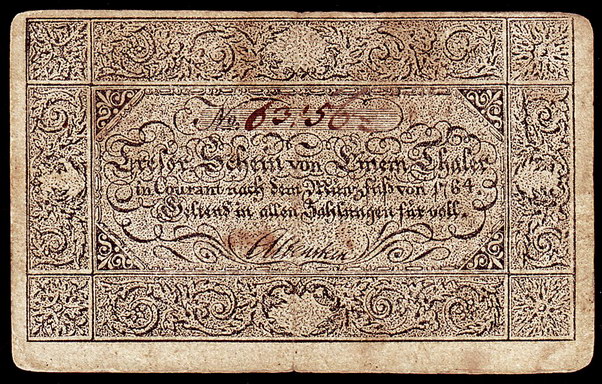 No. 63,56
Tresor-Schein von Einem Thaler
in Courant nach dem Münzfuß von 1764
Geltend in allen Zahlungen für voll.